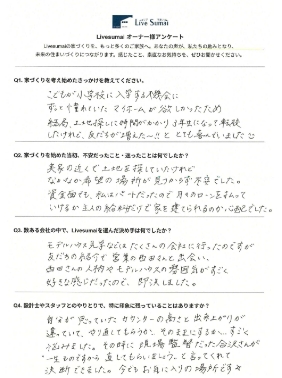 Live Sumai
Livesumai オーナー様アンケート
Livesumaiの家づくりを、もっと多くのご家族へ。あなたの声が、私たちの励みとなり、
未来の住まいづくりにつながります。感じたこと、率直なお気持ちを、ぜひお聞かせください。
Q1. 家づくりを考え始めたきっかけを教えてください。
こどもが小学校に入学する機会に
ずっと憧れていたマイホームが欲しかったため
結局、土地探しに時間がかかり3年生になって転校
したけれど、友だちが増えた〜!! と とても喜んでいました
Q2. 家づくりを始めた当初、不安だったこと・迷ったことは何でしたか？
実家の近くで土地を探していたけれど
なかなか希望の場所が見つからず不安でした。
資金面でも、私はパートだったので月々のローンを払って
いけるか主人の給料だけで家を建てられるのか心配でした。
Q3. 数ある会社の中で、Livesumaiを選んだ決め手は何でしたか？
モデルハウス見学などはたくさんの会社に行ったのですが
友だちの紹介で営業の西田さんと出会い、
西田さんの人柄やモデルハウスの雰囲気がすごく
好きな感じだったので、即決しました。
Q4. 設計士やスタッフとのやりとりで、特に印象に残っていることはありますか？
自分が思っていたカウンターの高さと出来上がりが
違っていて、やり直してもらうか、そのままにするか…すごく
悩みました。その時に現場監督だった合沢さんが
"一生ものですから直してもらいましょう"と言ってくれて
決断できました。今でもお気に入りの場所です